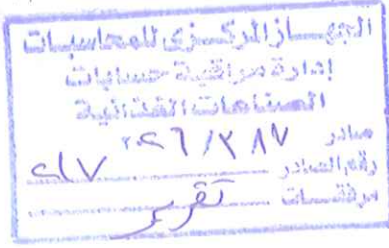 الجهـــاز المركـــزى للمحاسبـــات
إدارة مراقبة حسابات
الصناعات الغذائية
صادر
رقم الصادر ٢١٧
مرفقـــات تقرير